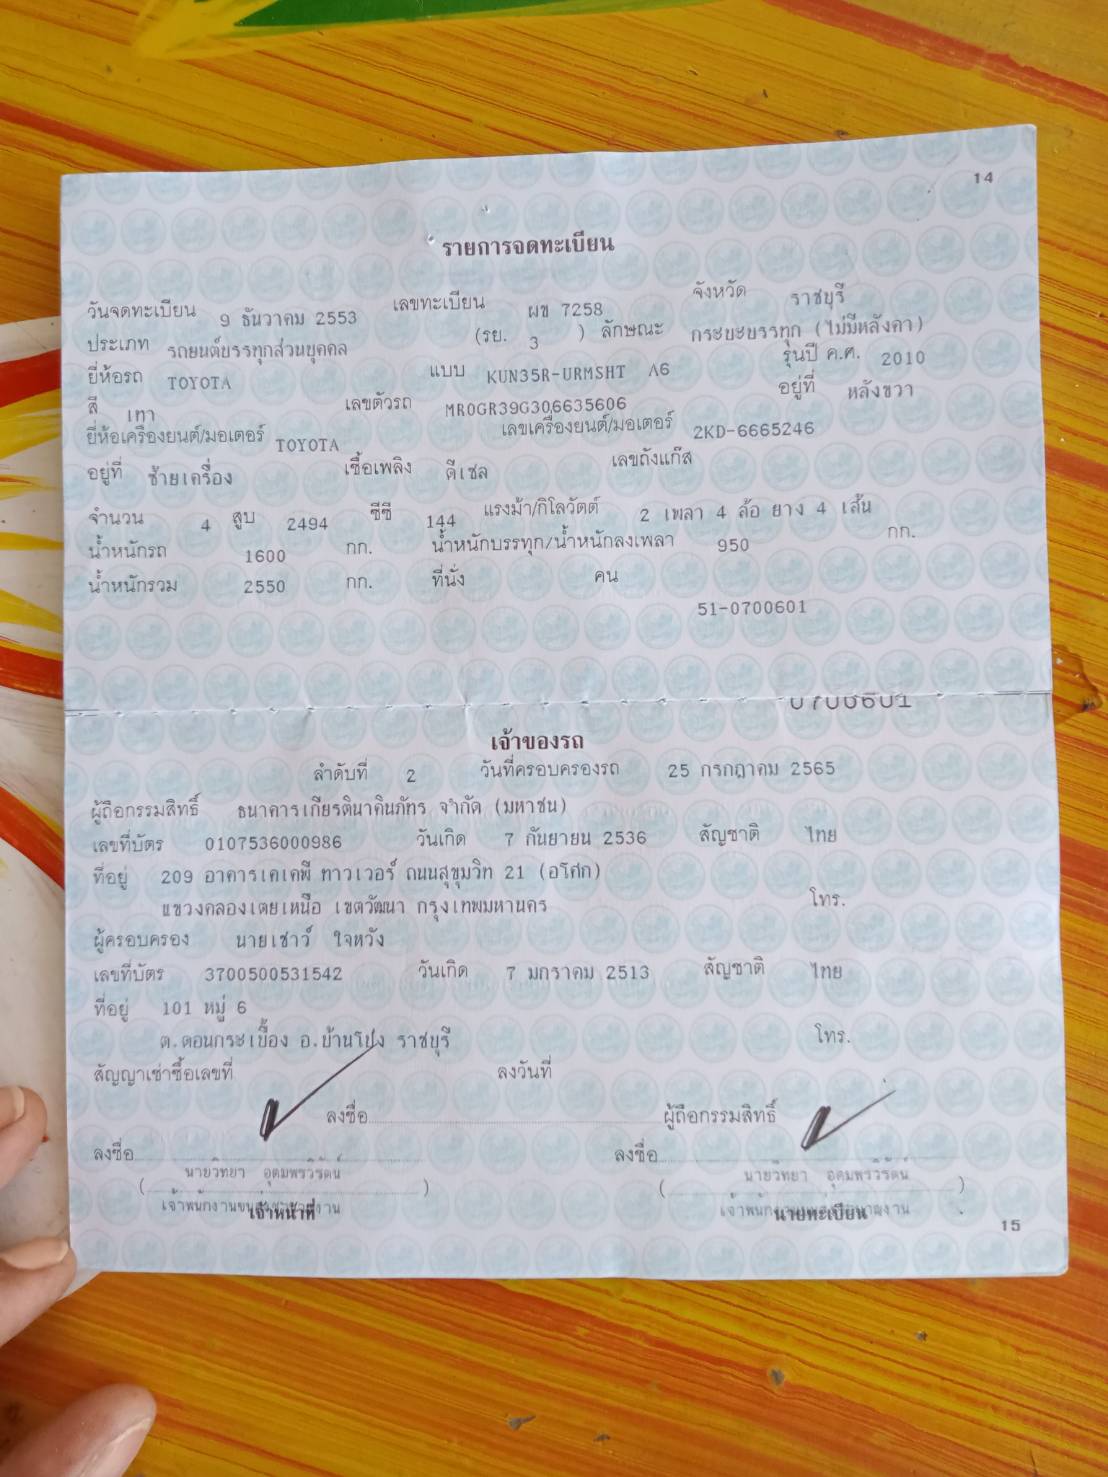 14
รายการจดทะเบียน
วันจดทะเบียน 9 ธันวาคม 2553 เลขทะเบียน ผข 7258 จังหวัด ราชบุรี
ประเภท รถยนต์บรรทุกส่วนบุคคล (รย. 3 ) ลักษณะ กระบะบรรทุก (ไม่มีหลังคา)
ยี่ห้อรถ TOYOTA แบบ KUN35R-URMSHT A6 รุ่นปี ค.ศ. 2010
สี เทา เลขตัวรถ MR0GR39G306635606 อยู่ที่ หลังขวา
ยี่ห้อเครื่องยนต์/มอเตอร์ TOYOTA เลขเครื่องยนต์/มอเตอร์ 2KD-6665246
อยู่ที่ ซ้ายเครื่อง เชื้อเพลิง ดีเซล เลขถังแก๊ส
จำนวน 4 สูบ 2494 ซีซี 144 แรงม้า/กิโลวัตต์ 2 เพลา 4 ล้อ ยาง 4 เส้น
น้ำหนักรถ 1600 กก. น้ำหนักบรรทุก/น้ำหนักลงเพลา 950 กก.
น้ำหนักรวม 2550 กก. ที่นั่ง คน
51-0700601
0700601
เจ้าของรถ
ลำดับที่ 2 วันที่ครอบครองรถ 25 กรกฎาคม 2565
ผู้ถือกรรมสิทธิ์ ธนาคารเกียรตินาคินภัทร จำกัด (มหาชน)
เลขที่บัตร 0107536000986 วันเกิด 7 กันยายน 2536 สัญชาติ ไทย
ที่อยู่ 209 อาคารเคเคพี ทาวเวอร์ ถนนสุขุมวิท 21 (อโศก)
แขวงคลองเตยเหนือ เขตวัฒนา กรุงเทพมหานคร โทร.
ผู้ครอบครอง นายเชาว์ ใจหวัง
เลขที่บัตร 3700500531542 วันเกิด 7 มกราคม 2513 สัญชาติ ไทย
ที่อยู่ 101 หมู่ 6
ต.ดอนกระเบื้อง อ.บ้านโป่ง ราชบุรี โทร.
สัญญาเช่าซื้อเลขที่ ลงวันที่
ลงชื่อ ผู้ถือกรรมสิทธิ์
ลงชื่อ ลงชื่อ
(นายวิทยา อุดมพรวิรัตน์) (นายวิทยา อุดมพรวิรัตน์)
เจ้าหน้าที่ นายทะเบียน
15